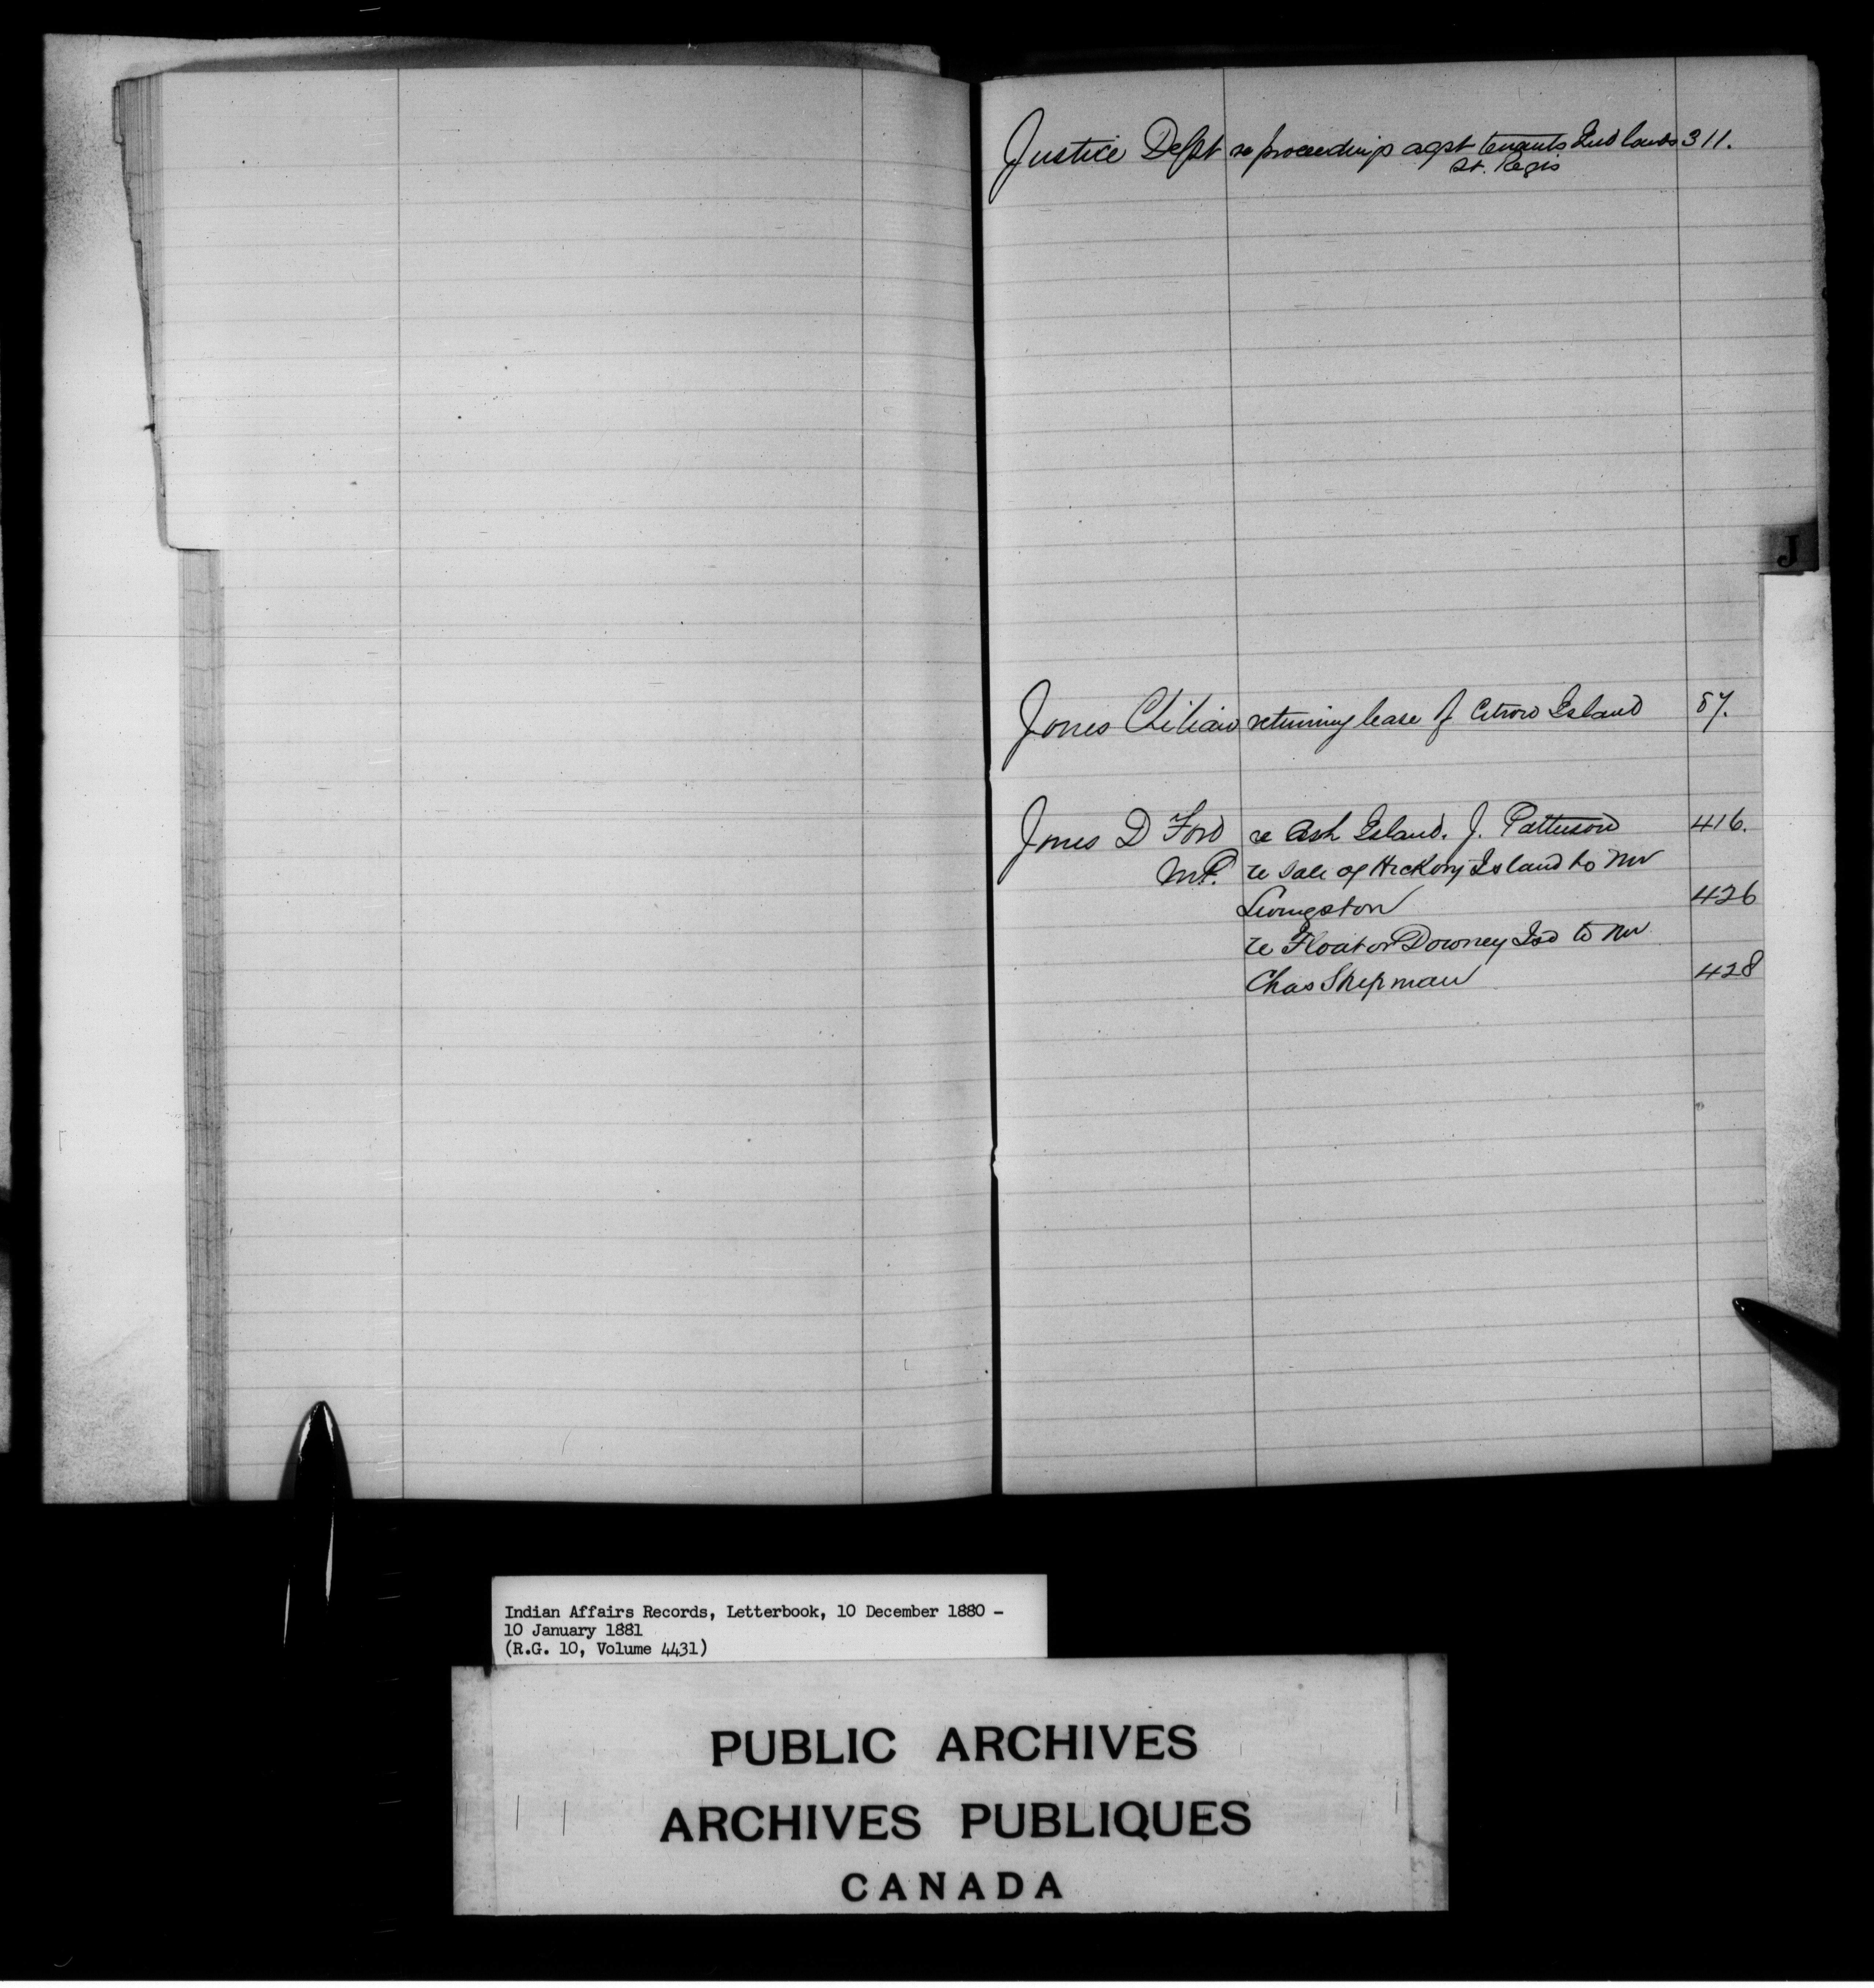 Justice Dept re proceedings agst tenants Ind lands 311.
St. Regis
J
Jones Chilian returning lease of Citron Island 87.
Jones D Ford re Ash Island. J. Patterson 416.
M.P. re sale of Hickory Island to Mr
Livingston 426
re Float or Downey Isd to Mr
Chas Shipman 428
Indian Affairs Records, Letterbook, 10 December 1880 -
10 January 1881
(R.G. 10, Volume 4431)
PUBLIC ARCHIVES
ARCHIVES PUBLIQUES
CANADA